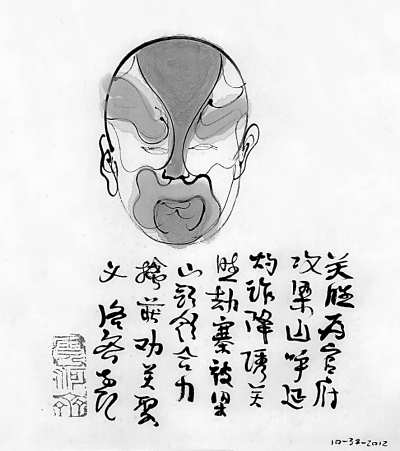 关胜为官府
攻梁山呼延
灼诈降诱关
胜劫寨被梁
山头领合力
擒获劝关聚
义
10-38-2012